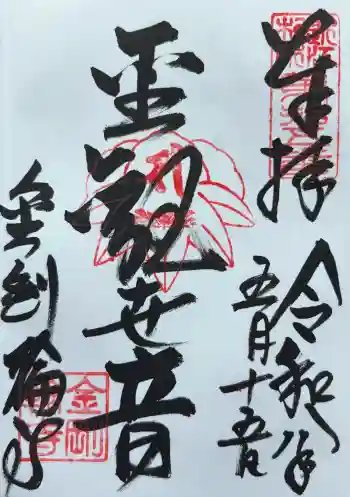 奉拝
令和年
五月十五日
聖観世音
金剛輪寺
金剛
輪寺